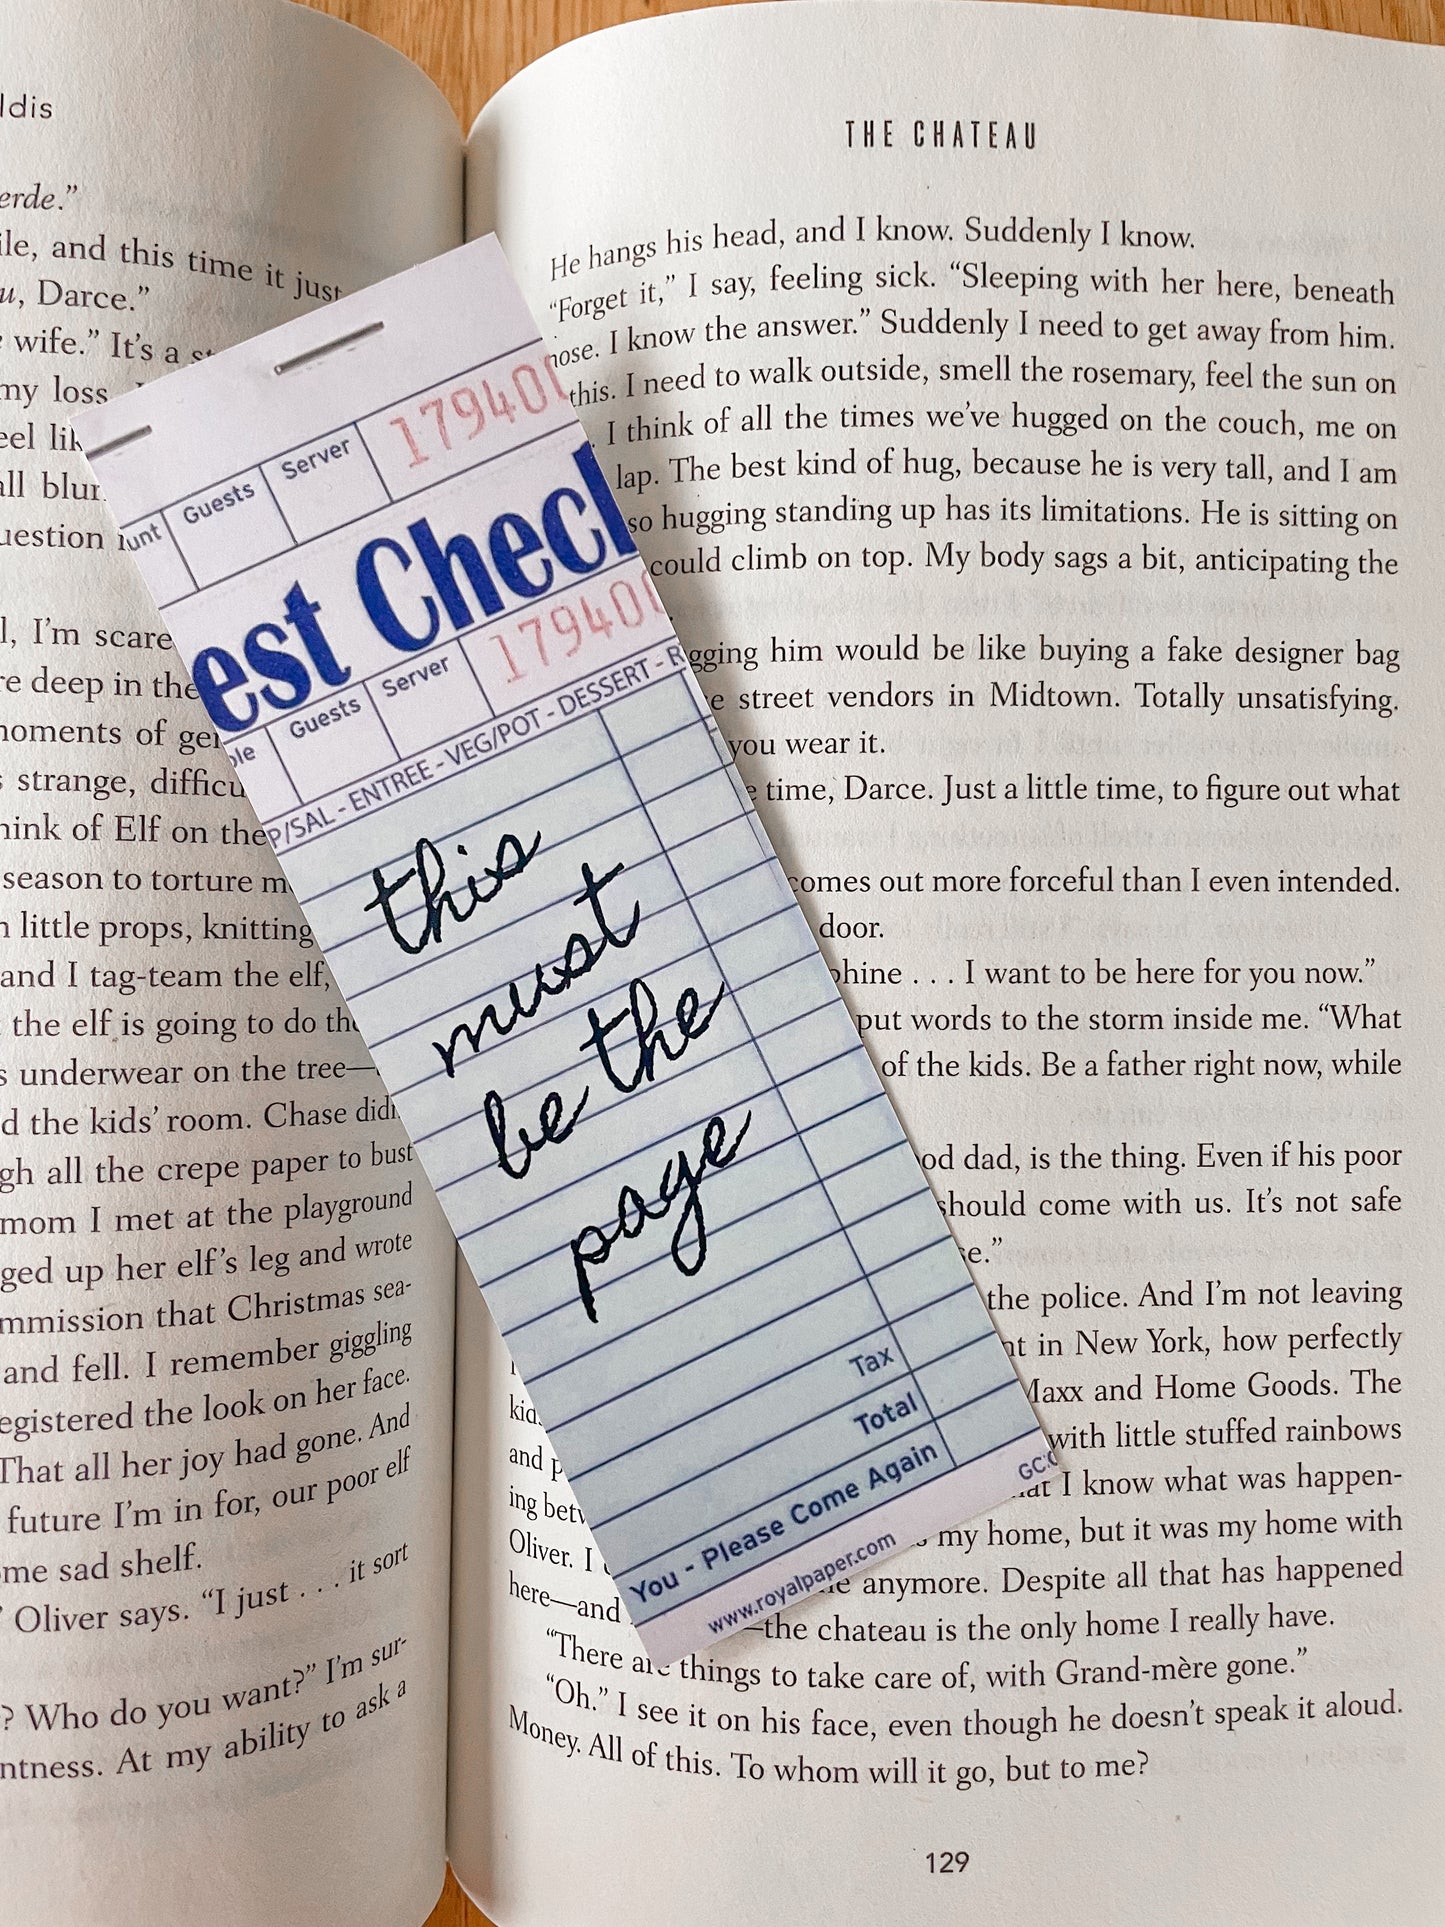 ldis
erde.”
ile, and this time it just
u, Darce.”
wife.” It’s a
my loss
eel lik
all blur
uestion
l, I’m scare
re deep in the
moments of ger
s strange, difficu
hink of Elf on the
season to torture m
n little props, knitting
and I tag-team the elf,
the elf is going to do the
s underwear on the tree—
d the kids’ room. Chase didn
gh all the crepe paper to bust
mom I met at the playground
ged up her elf’s leg and wrote
mmission that Christmas sea-
and fell. I remember giggling
egistered the look on her face.
That all her joy had gone. And
future I’m in for, our poor elf
me sad shelf.
” Oliver says. “I just . . . it sort
? Who do you want?” I’m sur-
ntness. At my ability to ask a
unt Guests Server 179400
est Check
ble Guests Server 179400
P/SAL - ENTREE - VEG/POT - DESSERT - R
this
must
be the
page
Tax
Total
You - Please Come Again
www.royalpaper.com GC
THE CHATEAU
He hangs his head, and I know. Suddenly I know.
“Forget it,” I say, feeling sick. “Sleeping with her here, beneath
nose. I know the answer.” Suddenly I need to get away from him.
this. I need to walk outside, smell the rosemary, feel the sun on
. I think of all the times we’ve hugged on the couch, me on
lap. The best kind of hug, because he is very tall, and I am
so hugging standing up has its limitations. He is sitting on
could climb on top. My body sags a bit, anticipating the
gging him would be like buying a fake designer bag
e street vendors in Midtown. Totally unsatisfying.
you wear it.
e time, Darce. Just a little time, to figure out what
comes out more forceful than I even intended.
door.
phine . . . I want to be here for you now.”
put words to the storm inside me. “What
of the kids. Be a father right now, while
od dad, is the thing. Even if his poor
should come with us. It’s not safe
se.”
the police. And I’m not leaving
nt in New York, how perfectly
Maxx and Home Goods. The
kids with little stuffed rainbows
and p hat I know what was happen-
ing betw my home, but it was my home with
Oliver. I me anymore. Despite all that has happened
here—and —the chateau is the only home I really have.
“There are things to take care of, with Grand-mère gone.”
“Oh.” I see it on his face, even though he doesn’t speak it aloud.
Money. All of this. To whom will it go, but to me?
129